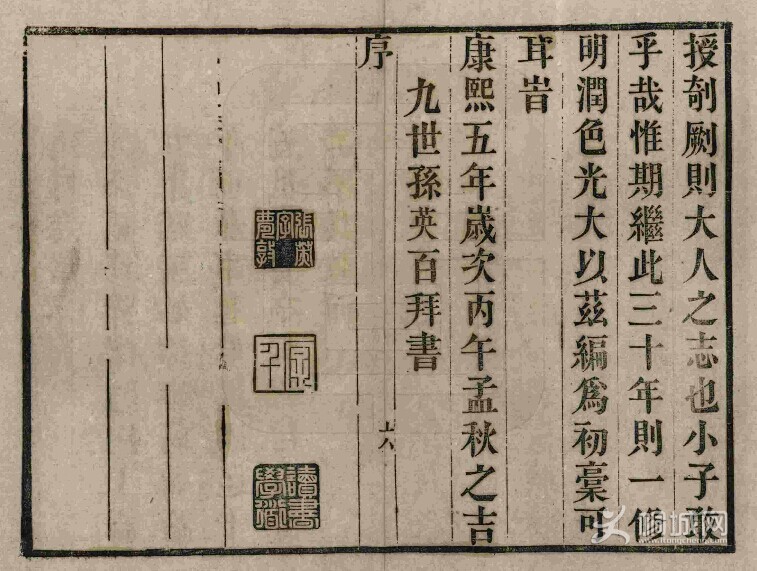 授剞劂則大人之志也小子敢
乎哉惟期繼此三十年則一修
明潤色光大以茲編爲初稾可
耳旹
康熙五年歲次丙午孟秋之吉
九世孫英百拜書
序
張英字夢敦
桐城网